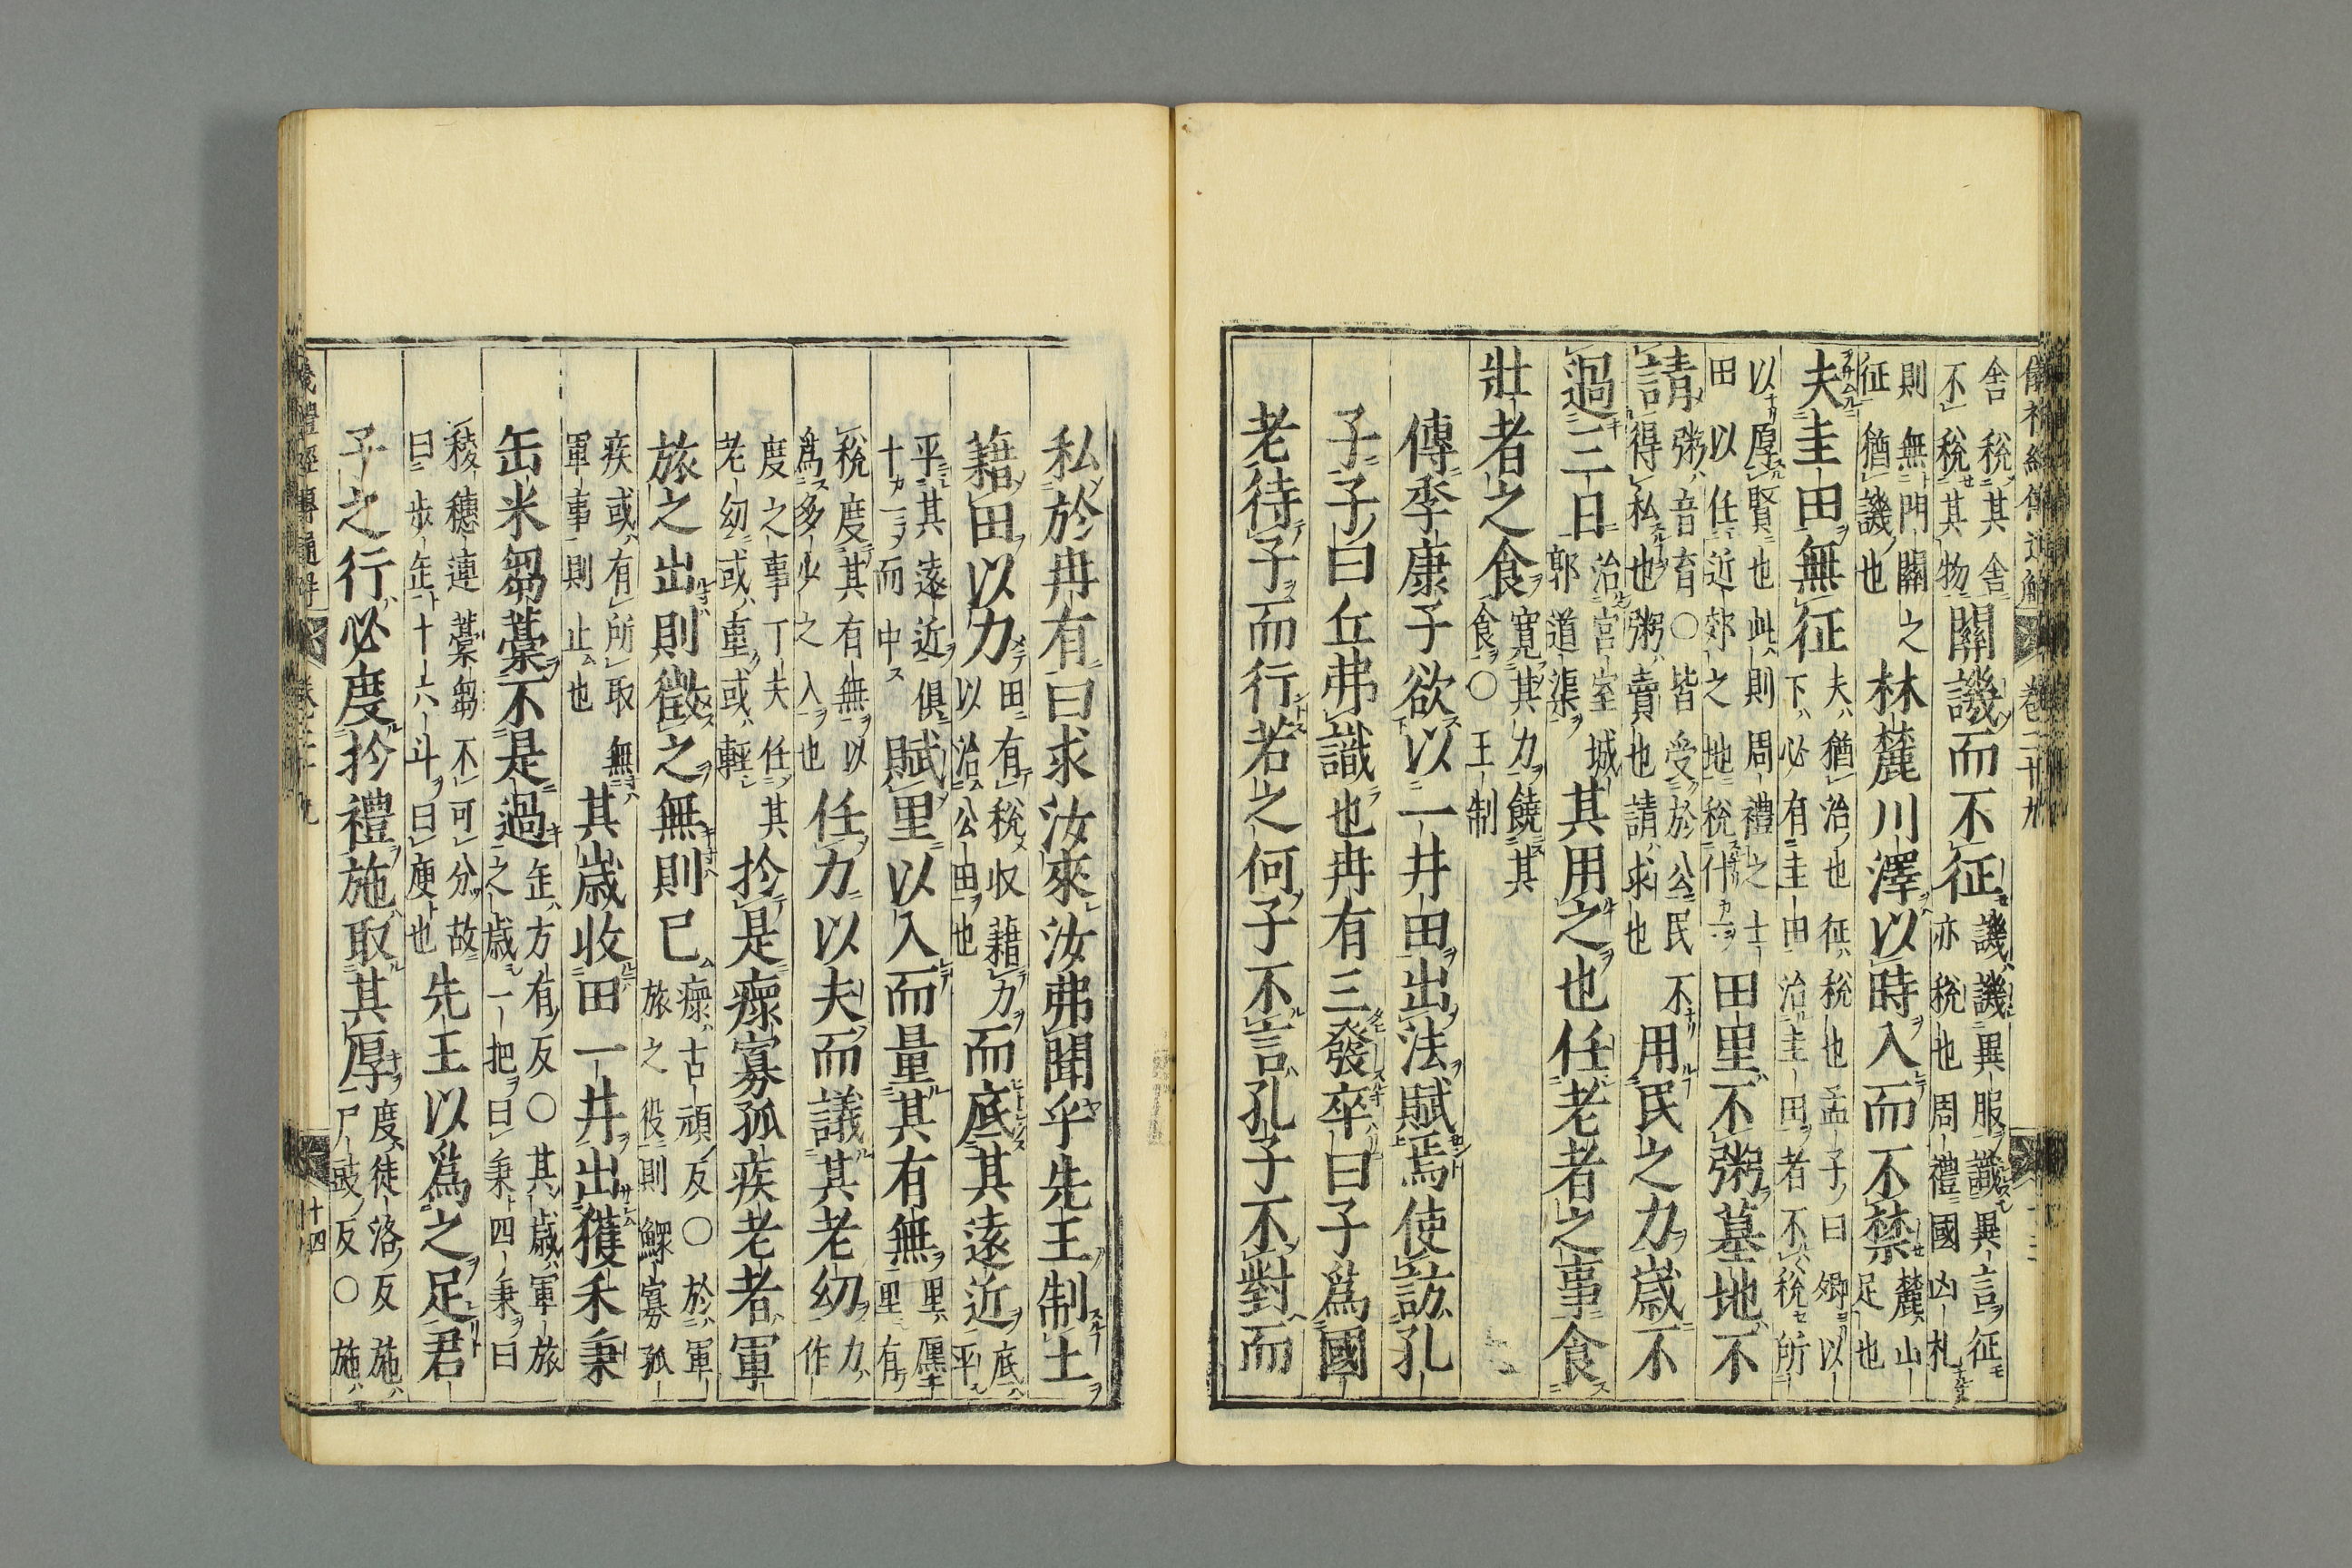 儀禮經傳通解 卷二十九 十三
舍稅其舍不稅其物關譏而不征譏譏異服識異言征亦稅也周禮國凶札
則無門關之征猶譏也林麓川澤以時入而不禁麓山足也
夫圭田無征夫猶治也征稅也孟子曰卿以下必有圭田治圭田者不稅所
以厚賢也此則周禮之士田以任近郊之地稅什一田里不粥墓地不
請粥音育○皆受於公民不得私也粥賣也請求也用民之力歲不
過三日治宮室城郭道渠其用之也任老者之事食
壯者之食寬其力饒其食○王制
傳季康子欲以一井田出法賦焉使訪孔
子子曰丘弗識也冉有三發卒曰子爲國
老待子而行若之何子不言孔子不對而
私於冉有曰求汝來汝弗聞乎先王制土
籍田以力田有稅收藉力以治公田也而底其遠近底平
平其遠近俱十一而中賦里以入而量其有無里廛里有
稅度其有無以爲多少之入也任力以夫而議其老幼力作
度之事丁夫任其老幼或重或輕於是瘝寡孤疾老者軍
旅之出則徵之無則已瘝古頑反○於軍旅之役則鰥寡孤
疾或有所取無軍事則止也其歲收田一井出獲禾秉
缶米芻藁不是過缶方有反○其歲軍旅之歲一把曰秉四秉曰
稜穗連藁芻不可分故曰步缶十六斗曰庾也先王以爲之足君
子之行必度於禮施取其厚度徒洛反施尸豉反○施
儀禮經傳通解 卷二十九 十四